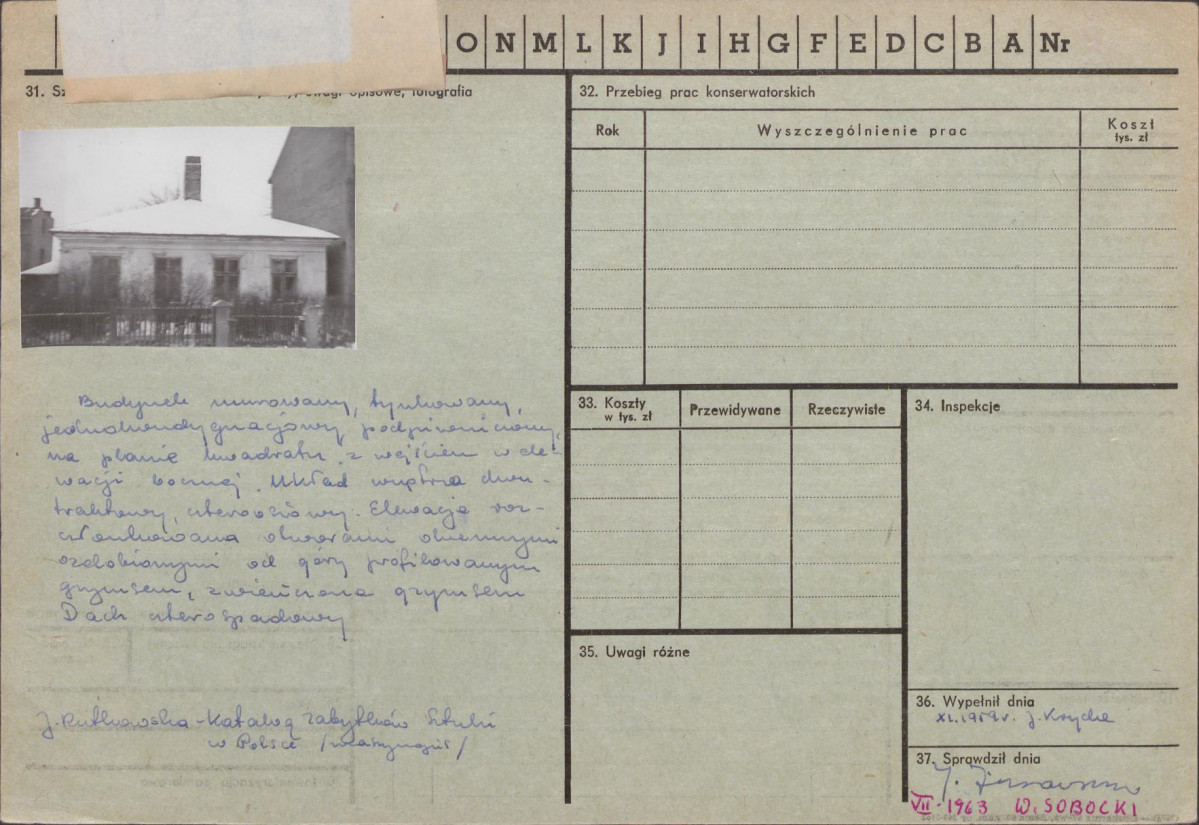 O N M L K J I H G F E D C B A Nr
31. Sz uwagi opisowe, fotografia
32. Przebieg prac konserwatorskich
Rok Wyszczególnienie prac Koszt
tys. zł
Budynek murowany, tynkowany,
jednokondygnacjowy, podpiwniczony,
na planie kwadratu z wejściem w ele-
wacji bocznej. Układ wnętrza dwu-
traktowy, czteroosiowy. Elewacja roz-
członkowana otworami okiennymi
ozdobionymi od góry profilowanym
gzymsem, zwieńczona gzymsem
Dach czterospadowy
J. Rutkowska - Katalog Zabytków Sztuki
w Polsce /maszynopis/
33. Koszty
w tys. zł
Przewidywane Rzeczywiste
34. Inspekcje
35. Uwagi różne
36. Wypełnił dnia
XI.1959r. J.
37. Sprawdził dnia
VII. 1963 W. SOBOCKI